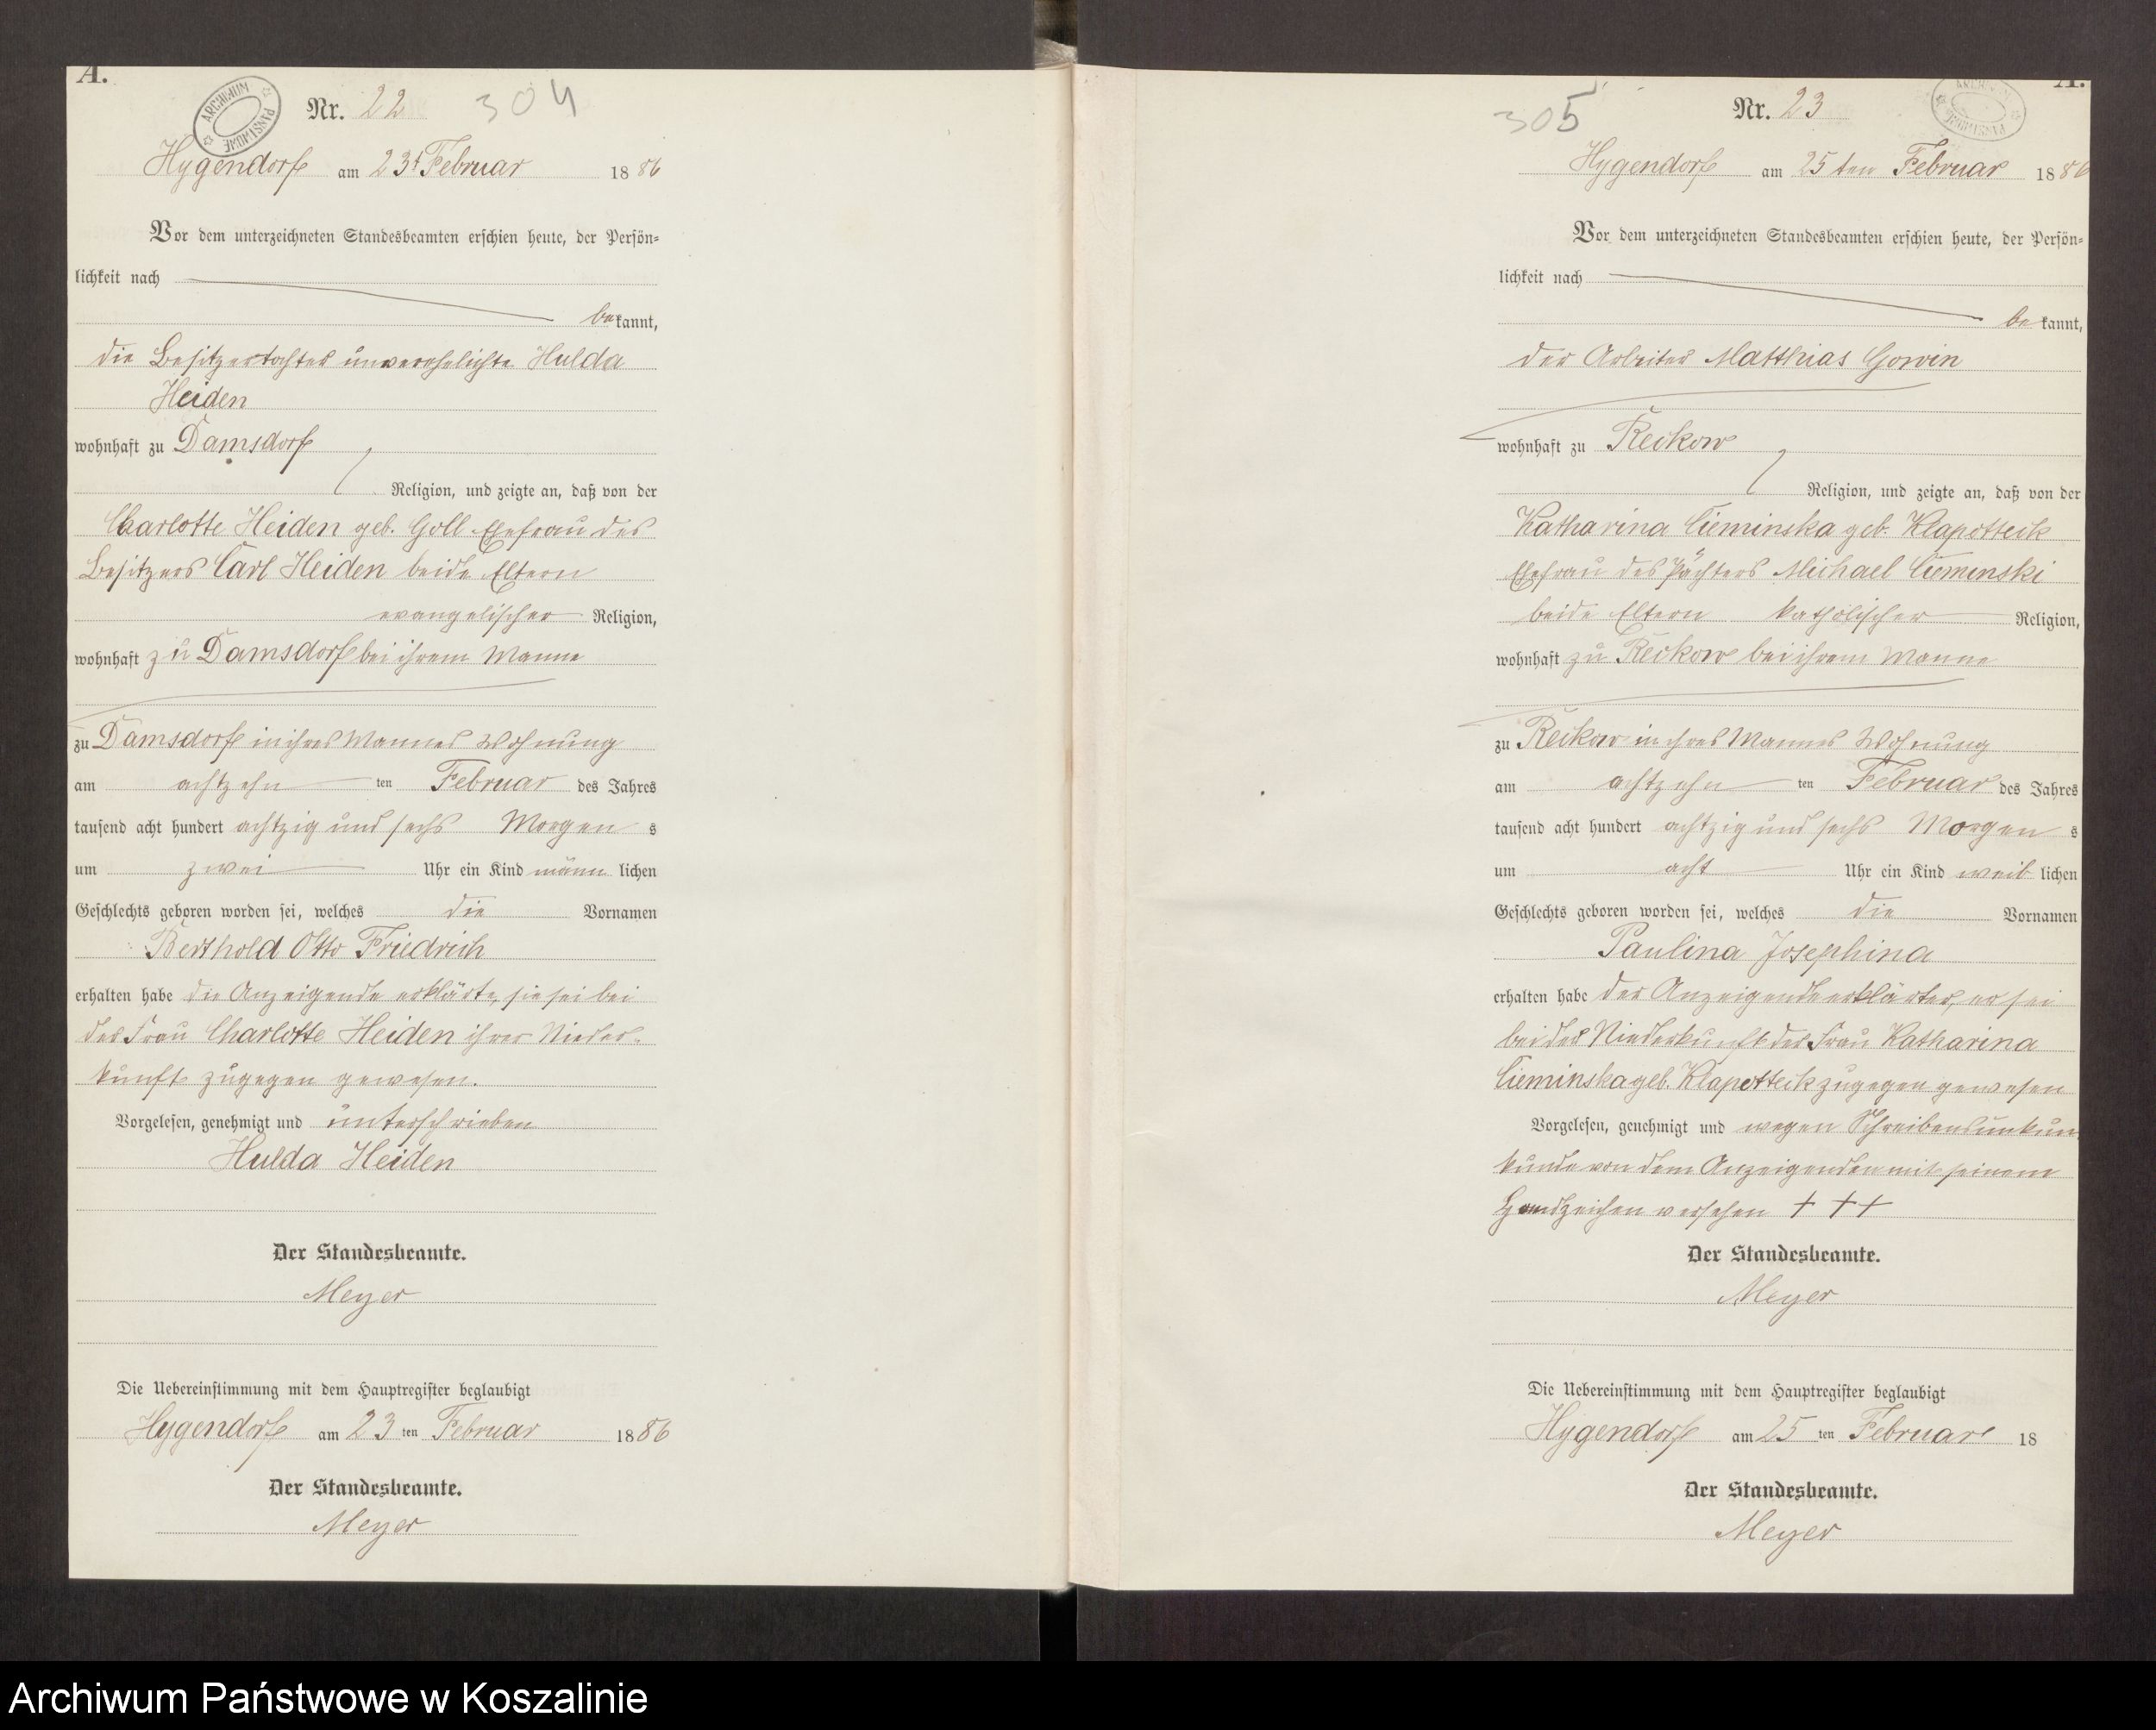 A.
ARCHIWUM PAŃSTWOWE
Nr. 22 304
Hygendorf am 23t Februar 1886
Vor dem unterzeichneten Standesbeamten erschien heute, der Persön=
lichkeit nach
bekannt,
die Besitzertochter unverehelichte Hulda
Heiden
wohnhaft zu Damsdorf
Religion, und zeigte an, daß von der
Charlotte Heiden geb. Goll Ehefrau des
Besitzers Carl Heiden beide Eltern
evangelischer Religion,
wohnhaft zu Damsdorf bei ihrem Manne
zu Damsdorf in ihres Mannes Wohnung
am achtzehn ten Februar des Jahres
tausend acht hundert achtzig und sechs Morgens
um zwei Uhr ein Kind männlichen
Geschlechts geboren worden sei, welches die Vornamen
Berthold Otto Friedrich
erhalten habe die Anzeigende erklärte, sie sei bei
der Frau Charlotte Heiden ihrer Nieder-
kunft zugegen gewesen.
Vorgelesen, genehmigt und unterschrieben
Hulda Heiden
Der Standesbeamte.
Meyer
Die Uebereinstimmung mit dem Hauptregister beglaubigt
Hygendorf am 23 ten Februar 1886
Der Standesbeamte.
Meyer
A.
ARCHIWUM PAŃSTWOWE
305 Nr. 23
Hygendorf am 25ten Februar 1886
Vor dem unterzeichneten Standesbeamten erschien heute, der Persön=
lichkeit nach
bekannt,
der Arbeiter Matthias Gowin
wohnhaft zu Reckow
Religion, und zeigte an, daß von der
Katharina Cieminska geb. Klapotteck
Ehefrau des Pächters Michael Cieminski
beide Eltern katholischer Religion,
wohnhaft zu Reckow bei ihrem Manne
zu Reckow in ihres Mannes Wohnung
am achtzehn ten Februar des Jahres
tausend acht hundert achtzig und sechs Morgens
um acht Uhr ein Kind weiblichen
Geschlechts geboren worden sei, welches die Vornamen
Paulina Josephina
erhalten habe der Anzeigende erklärter, er sei
bei der Niederkunft der Frau Katharina
Cieminska geb. Klapotteck zugegen gewesen
Vorgelesen, genehmigt und wegen Schreibensunkun
kunde von dem Anzeigenden mit seinem
Handzeichen versehen + + +
Der Standesbeamte.
Meyer
Die Uebereinstimmung mit dem Hauptregister beglaubigt
Hygendorf am 25 ten Februar 18
Der Standesbeamte.
Meyer
Archiwum Państwowe w Koszalinie